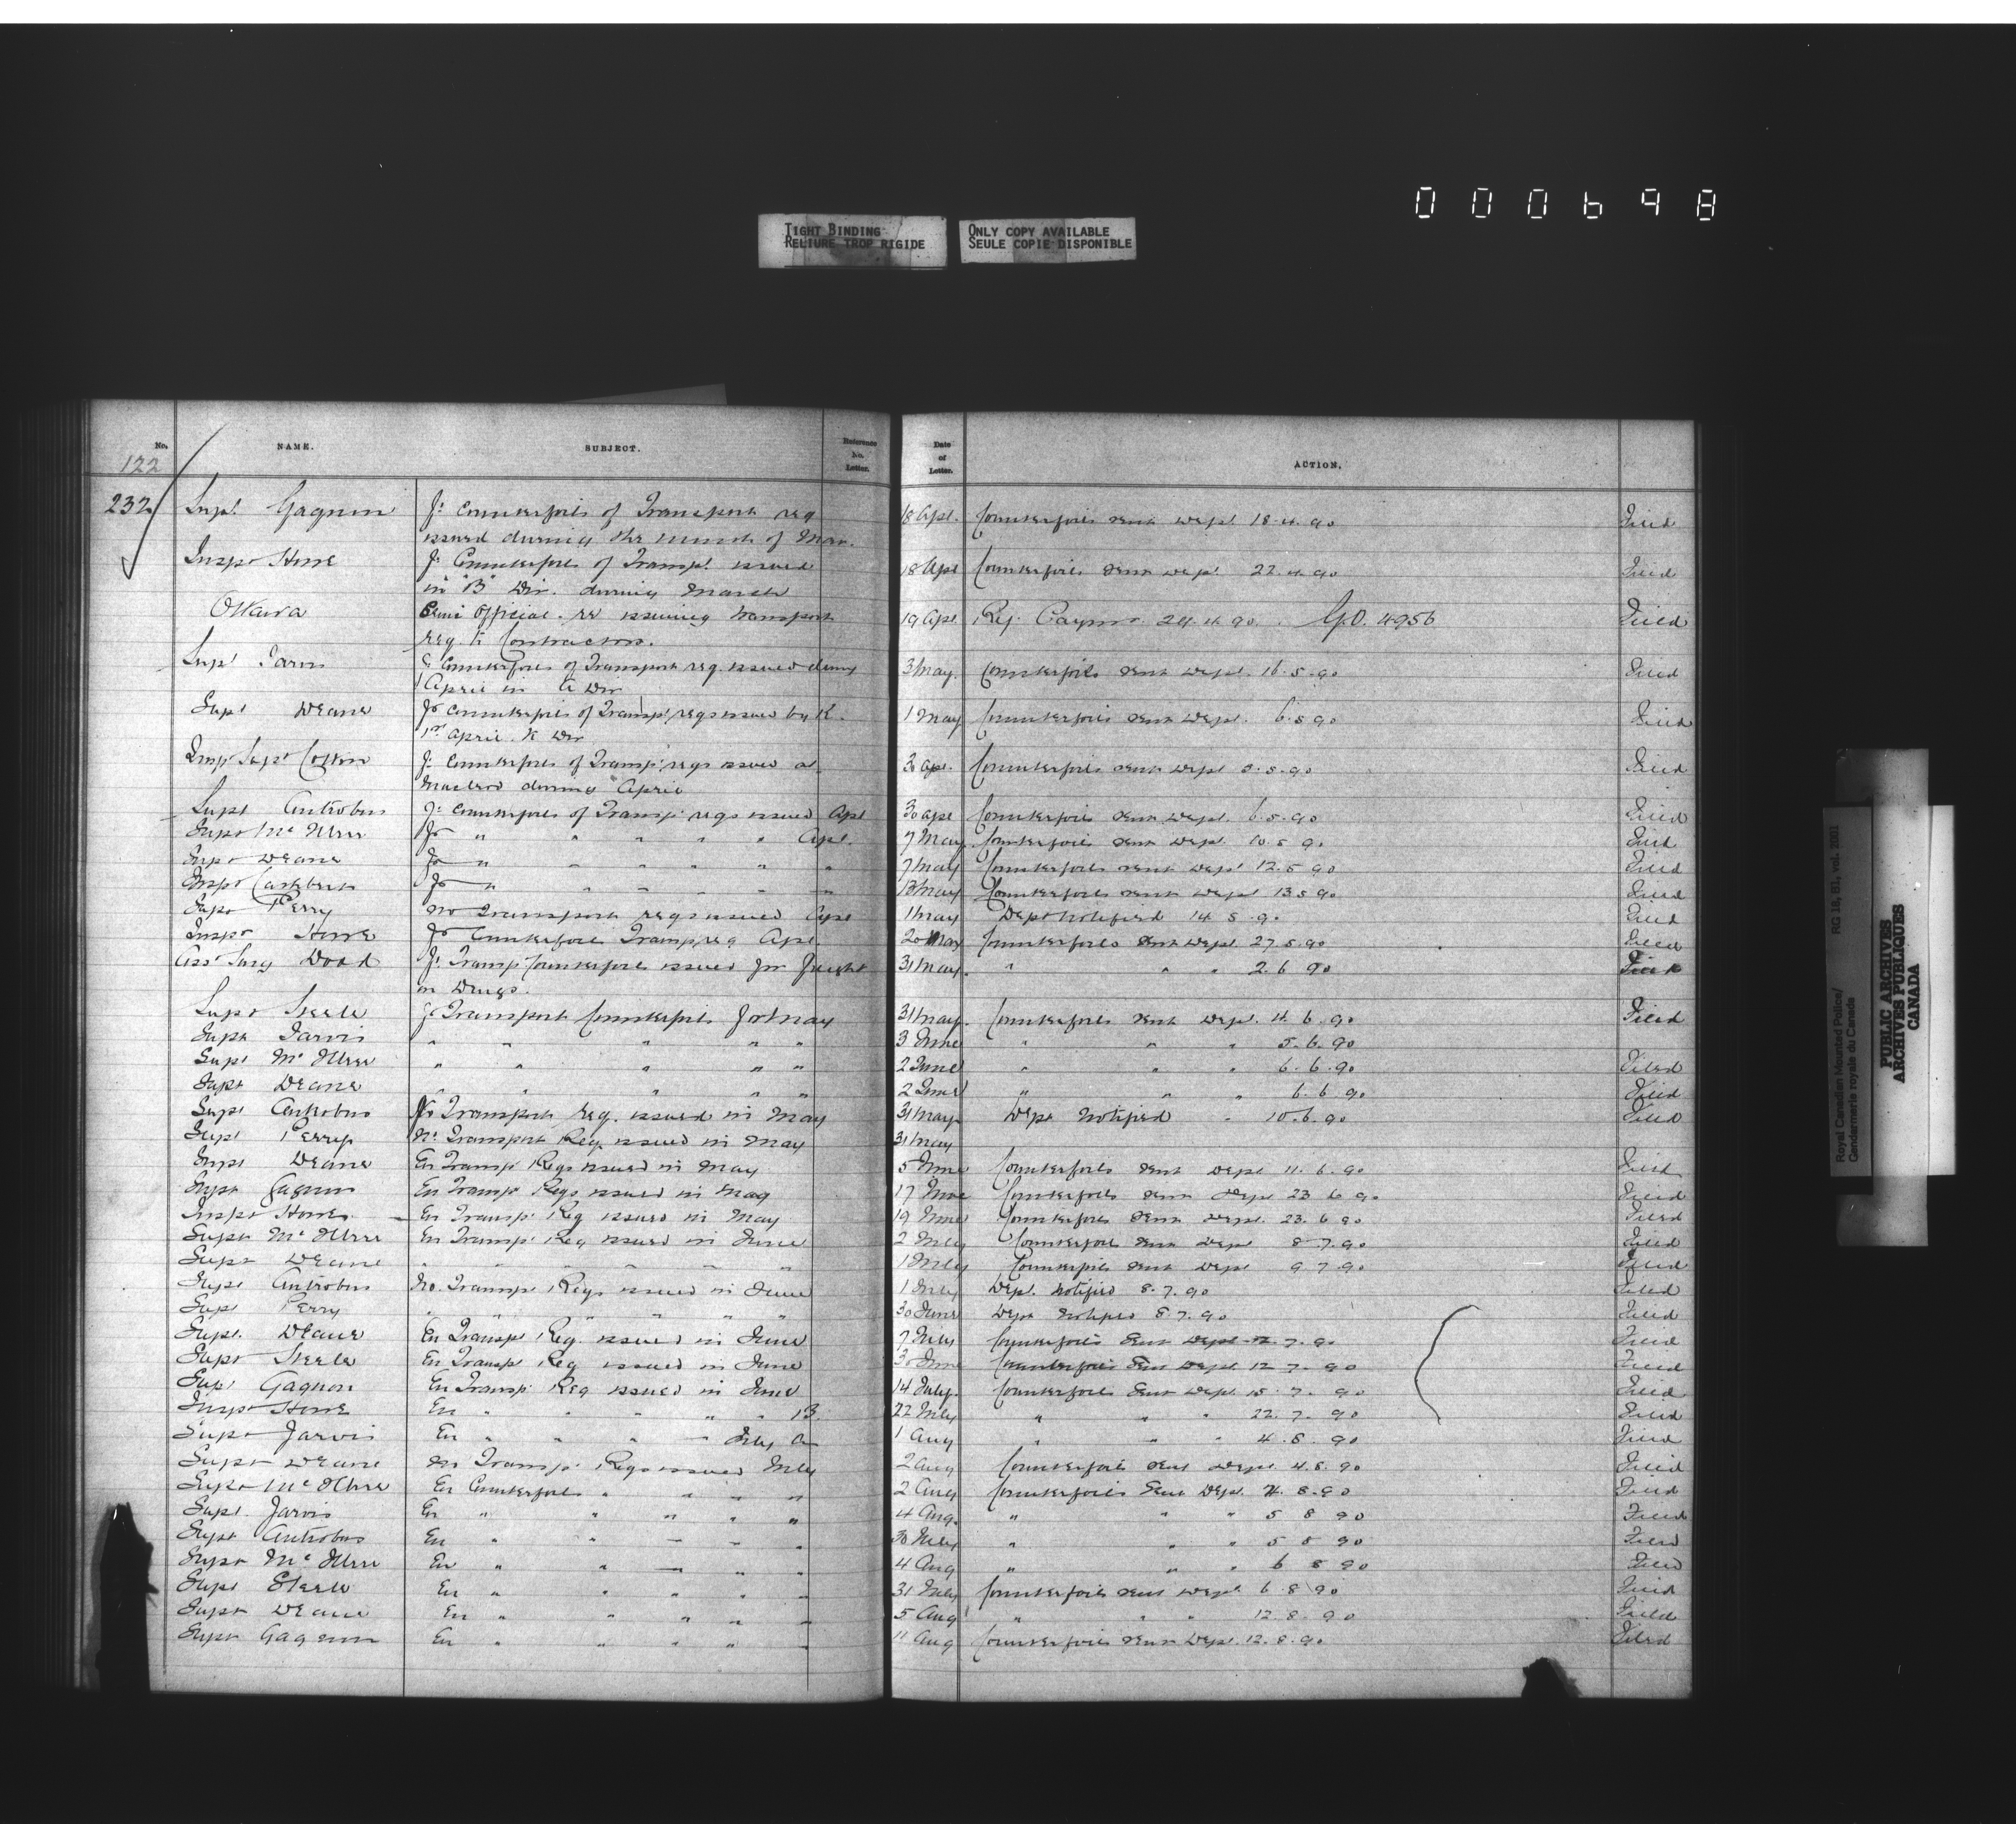 0 0 0 6 9 8
TIGHT BINDING
RELIURE TROP RIGIDE
ONLY COPY AVAILABLE
SEULE COPIE DISPONIBLE
No. NAME. SUBJECT. Reference No. Letter. Date of Letter. ACTION.
122
232 Supt Gagnon Fr Counterfoils of Transport req 18 Apl. Counterfoils sent Dept 18.4.90 Filed
issued during the month of Mar.
Inspr Howe Fr Counterfoils of Transpt issued 18 Apl Counterfoils sent Dept 22.4.90 Filed
in "B" Div. during March
Ottawa Semi Official re issuing transport 19 Apl G.O. 4956 Filed
req to Contractors.
Supt Jarvis Counterfoils of Transport req. issued during 3 May. Counterfoils sent Dept. 16.5.90 Filed
April in A Div
Supt Deane Counterfoils of Transpt reqs issued by K. 1 May Counterfoils sent Dept. 6.5.90 Filed
April. K Div
Supt Cotton Fr Counterfoils of Transpt reqs issued at 30 Apl. Counterfoils sent Dept 5.5.90 Filed
Macleod during April
Supt Antrobus Fr Counterfoils of Transpt reqs issued Apl 30 Apl Counterfoils sent Dept. 6.5.90 Filed
Supt McIllree Fr " " " " " Apl. 7 May Counterfoils sent Dept. 10.5.90 Filed
Supt Deane Fr " " " " " " 7 May Counterfoils sent Dept 12.5.90 Filed
Inspr Cuthbert Fr " " " " " " 13 May Counterfoils sent Dept 13.5.90 Filed
Supt Perry No Transport reqs issued Apl 1 May Dept Notified 14.5.90 Filed
Inspr Howe Fr Counterfoils Transp req Apl. 20 May Counterfoils sent Dept. 27.5.90 Filed
Asst Surg Dodd Fr Transp Counterfoils issued for freight 31 May. " " " 2.6.90 Filed
on Drugs.
Supt Steele Fr Transport Counterfoils for May 31 May. Counterfoils sent Dept. 4.6.90 Filed
Supt Jarvis " " " " " 3 June " " " 5.6.90
Supt McIllree " " " " " 2 June " " " 6.6.90 Filed
Supt Deane " " " " " 2 June " " " 6.6.90 Filed
Supt Antrobus Transport req. issued in May 31 May. Dept Notified 10.6.90 Filed
Supt Perry No Transport Req issued in May 31 May
Supt Deane En Transpt Reqs issued in May 5 June Counterfoils sent Dept 11.6.90 Filed
Supt Gagnon En Transpt Reqs issued in May 17 June Counterfoils sent Dept 23.6.90 Filed
Inspr Howe En Transpt Req issued in May 19 June Counterfoils sent Dept. 23.6.90 Filed
Supt McIllree En Transpt Req issued in June 2 July Counterfoils sent Dept 8.7.90 Filed
Supt Deane " " " " " " 1 July Counterfoils sent Dept 9.7.90 Filed
Supt Antrobus No. Transpt Reqs issued in June 1 July Dept. Notified 8.7.90 Filed
Supt Perry " " " " " 30 June Dept Notified 8.7.90 Filed
Supt. Deane En Transpt Req. issued in June 7 July Counterfoils Sent Dept 7.90 Filed
Supt Steele En Transpt Req issued in June 30 June Counterfoils Sent Dept. 12.7.90 Filed
Supt Gagnon En Transpt Req issued in June 14 July. Counterfoils Sent Dept 15.7.90 Filed
Inspr Howe En " " " " B 22 July " " " 22.7.90 Filed
Supt Jarvis En " " " " July A 1 Aug " " " 4.8.90 Filed
Supt Deane Transpt Reqs issued July 2 Aug Counterfoils sent Dept 4.8.90 Filed
Supt McIllree En Counterfoils " " " " 2 Aug Counterfoils Sent Dept. 4.8.90 Filed
Supt. Jarvis En " " " " " 4 Aug. " " " 5 8 90 Filed
Supt Antrobus En " " " " " 30 July " " " 5 8 90 Filed
Supt McIllree En " " " " " 4 Aug " " " 6 8 90 Filed
Supt Steele En " " " " " 31 July Counterfoils sent Dept 6.8.90 Filed
Supt Deane En " " " " " 5 Aug " " " 12.8.90 Filed
Supt Gagnon En " " " " " 11 Aug Counterfoils sent Dept. 12.8.90 Filed
Royal Canadian Mounted Police/ RG 18, B1, vol. 2001
Gendarmerie royale du Canada
PUBLIC ARCHIVES
ARCHIVES PUBLIQUES
CANADA